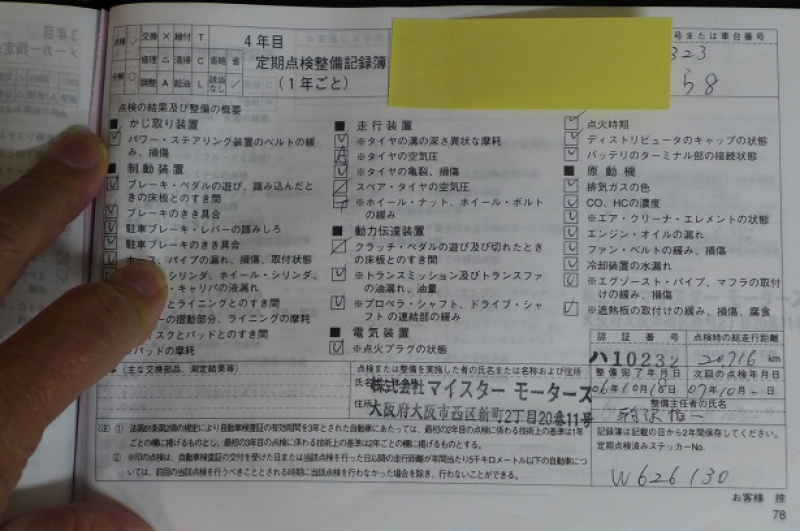 3年目
メーカー指定点
点検 レ 交換 × 締付 T
修理 △ 清掃 C 省略 省
分解 ○ 調整 A 給油 L 該当なし /
4年目
定期点検整備記録簿
(1年ごと)
号または車台番号
323
58
点検の結果及び整備の概要
■ かじ取り装置
パワー・ステアリング装置のベルトの緩
み、損傷
■ 制動装置
ブレーキ・ペダルの遊び、踏み込んだと
きの床板とのすき間
ブレーキのきき具合
駐車ブレーキ・レバーの踏みしろ
駐車ブレーキのきき具合
ホース、パイプの漏れ、損傷、取付状態
シリンダ、ホイール・シリンダ、
・キャリパの液漏れ
とライニングとのすき間
ーの摺動部分、ライニングの摩耗
ィスクとパッドとのすき間
※パッドの摩耗
■ 走行装置
※タイヤの溝の深さ異状な摩耗
※タイヤの空気圧
※タイヤの亀裂、損傷
スペア・タイヤの空気圧
※ホイール・ナット、ホイール・ボルト
の緩み
■ 動力伝達装置
クラッチ・ペダルの遊び及び切れたとき
の床板とのすき間
※トランスミッション及びトランスファ
の油漏れ、油量
※プロペラ・シャフト、ドライブ・シャ
フトの連結部の緩み
■ 電気装置
※点火プラグの状態
点火時期
ディストリビュータのキャップの状態
バッテリのターミナル部の接続状態
■ 原動機
排気ガスの色
CO、HCの濃度
※エア・クリーナ・エレメントの状態
エンジン・オイルの漏れ
ファン・ベルトの緩み、損傷
冷却装置の水漏れ
※エグゾースト・パイプ、マフラの取付
けの緩み、損傷
※遮熱板の取付けの緩み、損傷、腐食
(主な交換部品、測定結果等)
点検または整備を実施した者の氏名または名称および住所
氏名
株式会社マイスター モータース
住所
大阪府大阪市西区新町2丁目20番11号
認証番号 点検時の総走行距離
ハ10232 20716 km
整備完了年月日 次回の点検年月日
06年10月18日 07年10月-日
整備主任者の氏名
記録簿は記載の日から2年間保存してください。
定期点検済みステッカーNo.
W626130
(注) ① 法第61条第2項の規定により自動車検査証の有効期間を3年とされた自動車にあたっては、最初の2年目の点検に係わる技術上の基準は1年
ごとの欄に掲げるものとし、最初の3年目の点検に係わる技術上の基準は2年ごとの欄に掲げるものとする。
② ※印の点検は、自動車検査証の交付を受けた日または当該点検を行った日以前の走行距離が年間当たり5千キロメートル以下の自動車につ
いては、前回の当該点検を行うべきこととされる時期に当該点検を行わなかった場合を除き、行わないことができる。
お客様 控
78